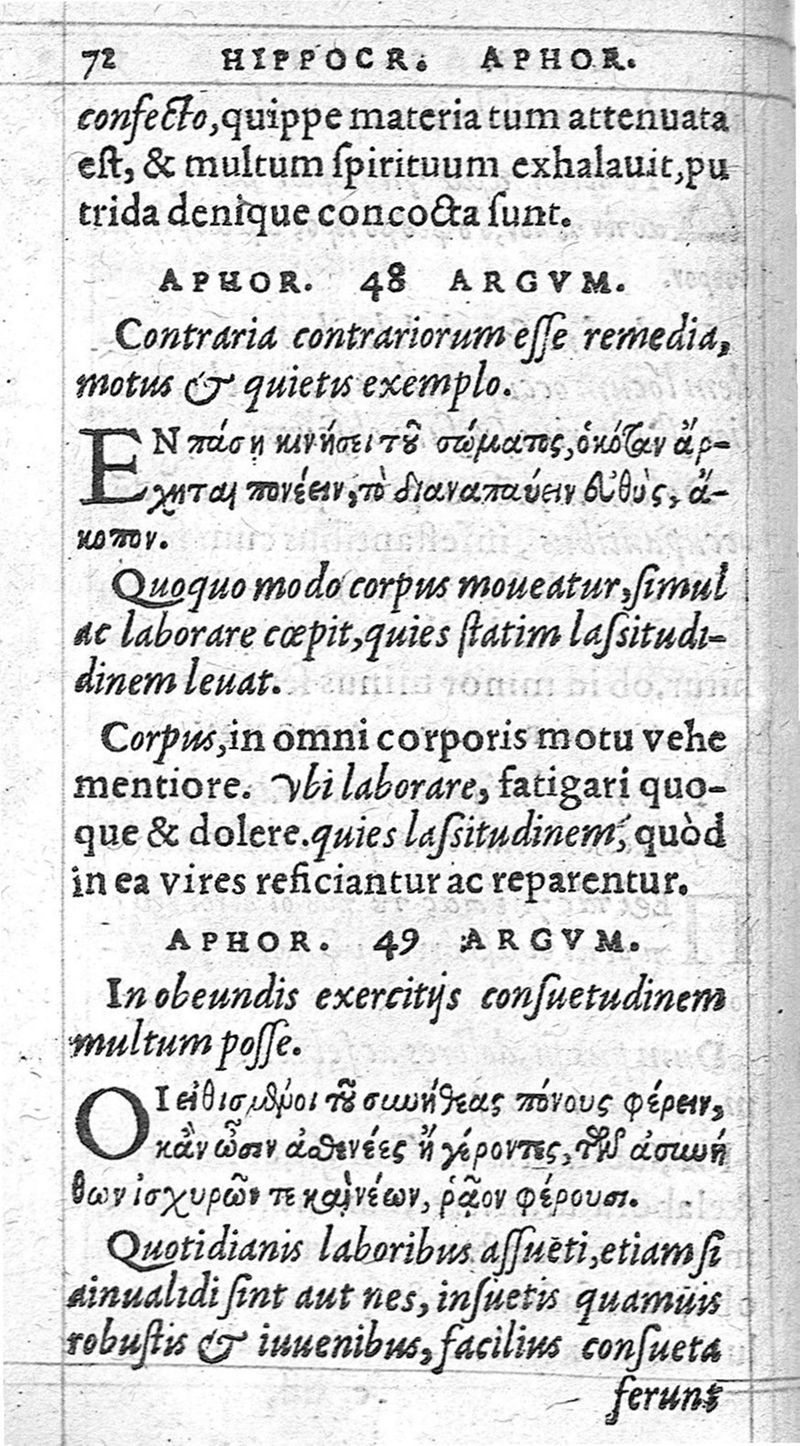 72 HIPPOCR. APHOR.
confecto, quippe materia tum attenuata
est, & multum ſpirituum exhalauit, pu
trida denique concocta ſunt.
APHOR. 48 ARGVM.
Contraria contrariorum eſſe remedia,
motus & quietis exemplo.
ΕΝ πάσῃ κινήσει τοῦ σώματος, ὁκόταν ἄρ-
χηται πονέειν, τὸ διαναπαύειν εὐθὺς, ἄ-
κοπον.
Quoquo modo corpus moueatur, ſimul
ac laborare cœpit, quies ſtatim laſsitudi-
dinem leuat.
Corpus, in omni corporis motu vehe
mentiore. Vbi laborare, fatigari quo-
que & dolere. quies laſsitudinem, quòd
in ea vires reficiantur ac reparentur.
APHOR. 49 ARGVM.
In obeundis exercitijs conſuetudinem
multum poſſe.
ΟΙ εἰθισμένοι τοὺς συνήθεας πόνους φέρειν,
κἂν ὦσιν ἀσθενέες ἢ γέροντες, τῶν ἀσυνή
θων ἰσχυρῶν τε καὶ νέων, ῥᾷον φέρουσι.
Quotidianis laboribus aſſueti, etiam ſi
inualidi ſint aut nes, inſuetis quamuis
robuſtis & iuuenibus, facilius conſueta
ferunt